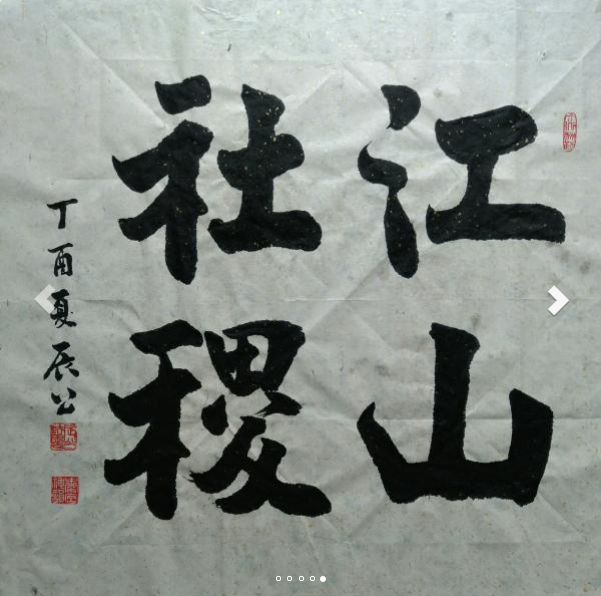 江山
社稷
丁酉夏辰公